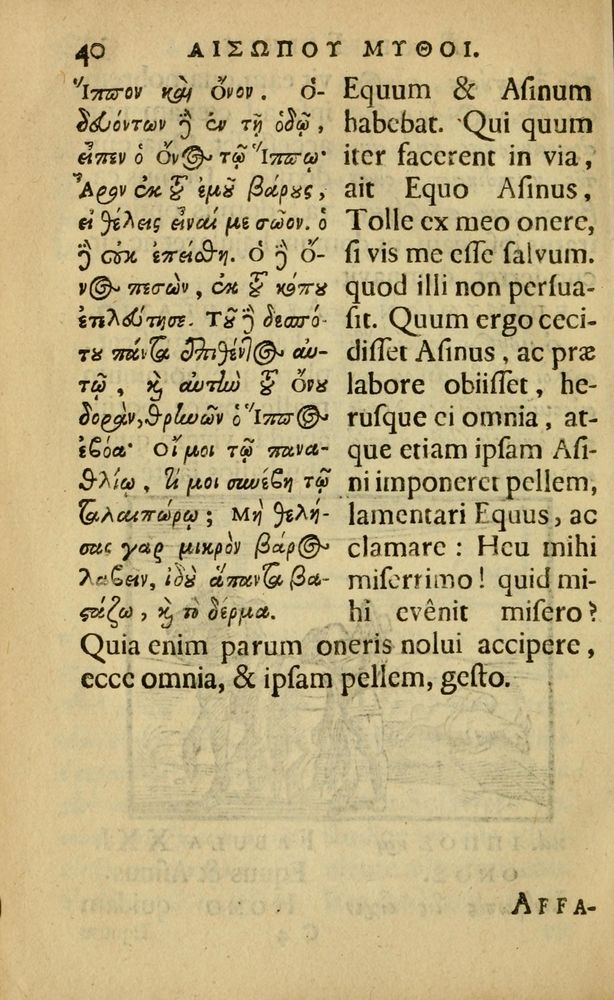 40 ΑΙΣΩΠΟΥ ΜΥΘΟΙ.
Ἵππον καὶ ὄνον. ὁ-
δευόντων ἢ ἐν τῇ ὁδῷ,
εἶπεν ὁ ὄνος τῷ Ἵππῳ·
Ἆρον ἐκ τοῦ ἐμοῦ βάρους,
εἰ θέλεις εἶναί με σῶον. ὁ
ἢ οὐκ ἐπείσθη. ὁ ἢ ὄ-
νος πεσὼν, ἐκ τοῦ κόπου
ἐτελεύτησε. Τοῦ ἢ δεσπό-
του πάντα ἐπιθέντος αὐ-
τῷ, καὶ αὐτὴν τοῦ ὄνου
δορὰν, θρηνῶν ὁ Ἵππος
ἐβόα· Οἴμοι τῷ πανα-
θλίῳ, τί μοι συνέβη τῷ
ταλαιπώρῳ; Μὴ θελή-
σας γὰρ μικρὸν βάρος
λαβεῖν, ἰδοὺ ἅπαντα βα-
στάζω, καὶ τὸ δέρμα.
Equum & Aſinum
habebat. Qui quum
iter facerent in via,
ait Equo Aſinus,
Tolle ex meo onere,
ſi vis me eſſe ſalvum.
quod illi non perſua-
ſit. Quum ergo ceci-
diſſet Aſinus, ac præ
labore obiiſſet, he-
ruſque ei omnia, at-
que etiam ipſam Aſi-
ni imponeret pellem,
lamentari Equus, ac
clamare: Heu mihi
miſerrimo! quid mi-
hi evênit miſero?
Quia enim parum oneris nolui accipere,
ecce omnia, & ipſam pellem, geſto.
AFFA-